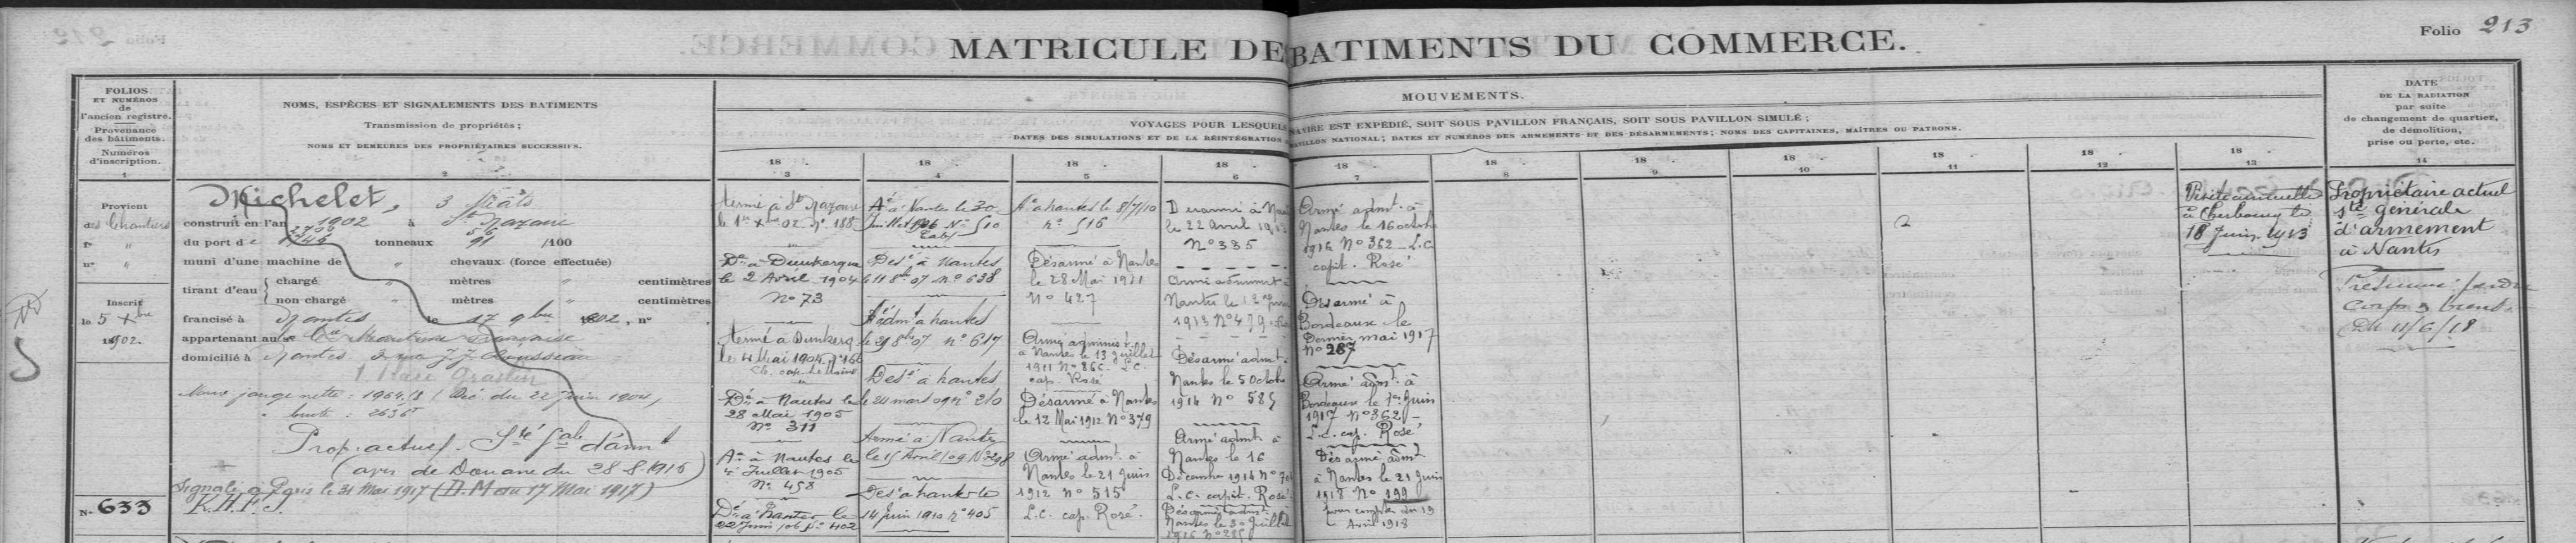 Folio 213
MATRICULE DE BATIMENTS DU COMMERCE.
FOLIOS
ET NUMÉROS
de
l'ancien registre.
Provenance
des bâtiments.
Numéros
d'inscription.
1
NOMS, ESPÈCES ET SIGNALEMENTS DES BATIMENTS
Transmission de propriétés;
NOMS ET DEMEURES DES PROPRIÉTAIRES SUCCESSIFS.
2
MOUVEMENTS.
VOYAGES POUR LESQUELS NAVIRE EST EXPÉDIÉ, SOIT SOUS PAVILLON FRANÇAIS, SOIT SOUS PAVILLON SIMULÉ;
DATES DES SIMULATIONS ET DE LA RÉINTÉGRATION PAVILLON NATIONAL; DATES ET NUMÉROS DES ARMEMENTS ET DES DÉSARMEMENTS; NOMS DES CAPITAINES, MAÎTRES OU PATRONS.
18 18 18 18 18 18 18 18 18 18 18
3 4 5 6 7 8 9 10 11 12 13
DATE
DE LA RADIATION
par suite
de changement de quartier,
de démolition,
prise ou perte, etc.
14
Provient
des Chantiers
r° "
n° "
Inscrit
le 5 Xbre
1902.
N° 633
Michelet, 3 mâts
construit en l'an 1902 à St Nazaire
du port de tonneaux 91 /100
muni d'une machine de " chevaux (force effectuée)
tirant d'eau
chargé " mètres " centimètres
non chargé " mètres " centimètres
francisé à Nantes le 17 9bre 1902, n°
appartenant au Cie Maritime Française
domicilié à Nantes 2 rue J J Rousseau
1. Place Graslin
Nouv jauge nette : 1964,58 (Déc. du 22 Juin 1904)
" brute : 2636
Prop. actuel. Sté Gale d'armt
(avis de Douane du 28-8-1916)
Signalé à Paris le 31 Mai 1917 (D.M du 17 Mai 1917)
K.H.F.S.
Armé à St Nazaire
le 1er Xbre 02. N° 188
Dé à Dunkerque
le 2 Avril 1904
N° 73
Armé à Dunkerq
le 4 Mai 1904 N° 166
Dé à Nantes le
28 Mai 1905
N° 311
Aé à Nantes le
4 Juillet 1905
N° 458
Dé à Nantes le
22 Juin 106 N° 402
Aé à Nantes le 30
Juillet 1906 N° 510
Désé à Nantes
le 11 8bre 07 N° 638
Rédmt à Nantes
le 29 8bre 07 n° 617
Desé à Nantes
le 24 mars 09 n° 210
Armé à Nantes
le 15 Avril 109 N° 298
Des à Nantes le
14 juin 1910 n° 405
Aé à Nantes le 8/7/10
n° 516
Désarmé à Nantes
le 28 Mai 1911
N° 427
Armé administ.
à Nantes le 13 Juillet
1911 N° 866 L.C.
cap. Rosé
Désarmé à Nantes
le 12 Mai 1912 N° 379
Armé admt. à
Nantes le 21 Juin
1912 N° 515
L.C. cap. Rosé.
Désarmé à Nantes
le 22 avril 1913
N° 335
Nantes le
1913 N° 479
Désarmé admt.
Nantes le 5 Octobre
1914 N° 585
Armé admt. à
Nantes le 16
Décembre 1914 N°
L.C. capit. Rosé
Désarmé admt.
Nantes le 30 Juillet
1916 N° 285
Armé admt. à
Nantes le 16 octobre
1916 N° 362 - L.C.
capit. Rosé
Désarmé à
Bordeaux le
Dernier mai 1917
N° 287
Armé admt. à
Bordeaux le 1er Juin
1917 N° 362 -
L.C. cap. Rosé
Désarmé admt
à Nantes le 21 Juin
1918 N° 199
pour compter du 19
Avril 1918
Visite annuelle
à Cherbourg le
18 Juin 1913
Propriétaire actuel
Sté générale
d'armement
à Nantes
Présumé perdu
corps et biens.
DM 11/6/18